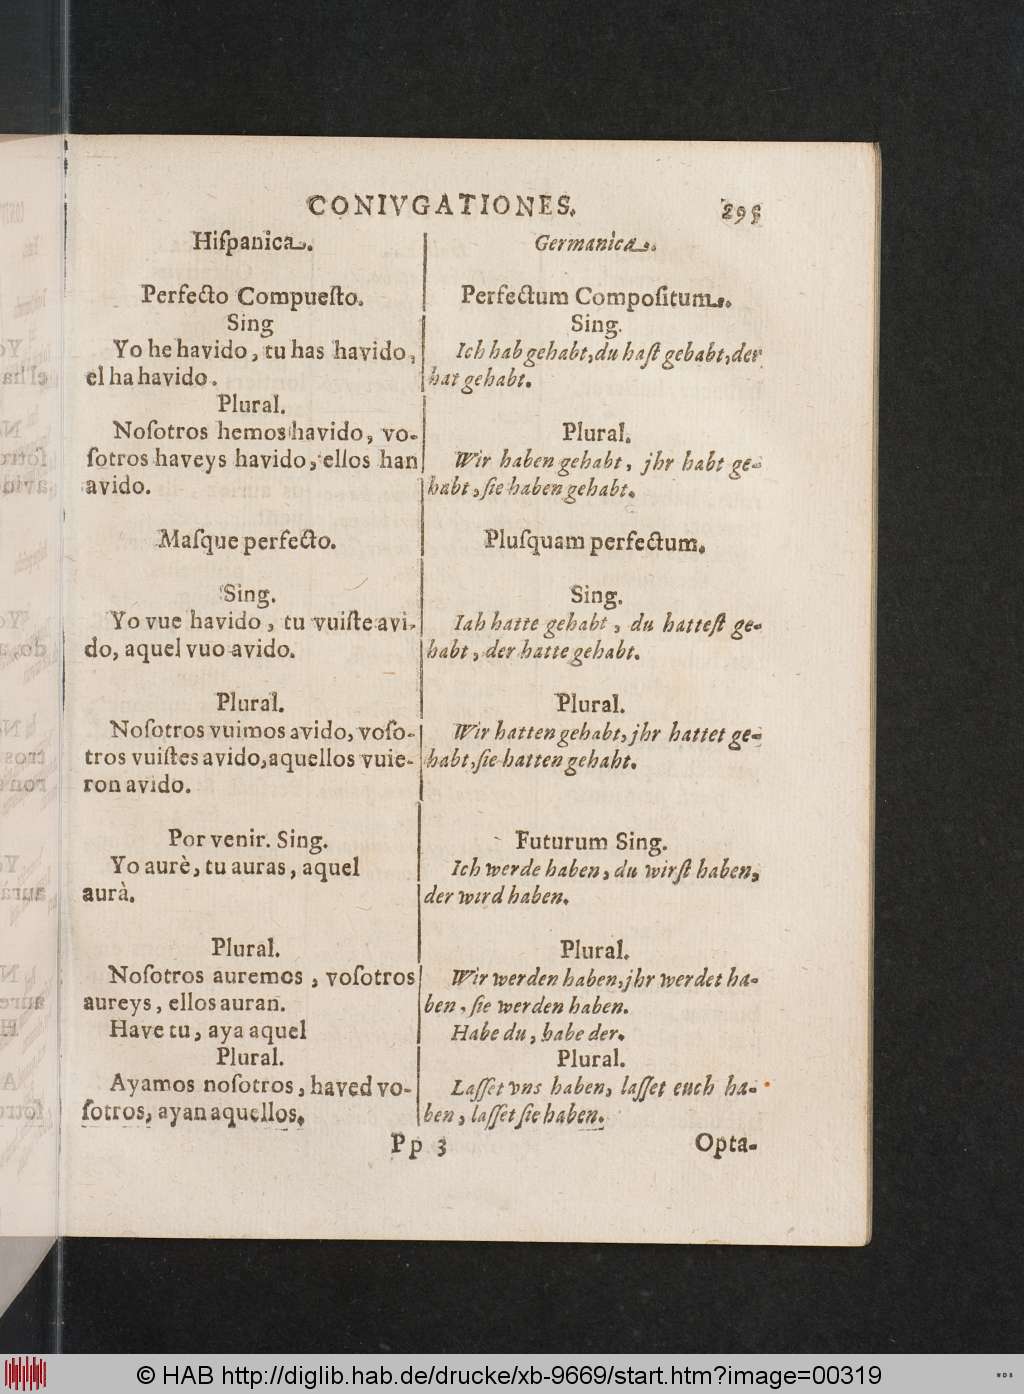 CONIVGATIONES. 295
Hiſpanica.
Perfecto Compueſto.
Sing
Yo he havido, tu has havido,
el ha havido.
Plural.
Noſotros hemos havido, vo-
ſotros haveys havido, ellos han
avido.
Maſque perfecto.
Sing.
Yo vue havido, tu vuiſte avi-
do, aquel vuo avido.
Plural.
Noſotros vuimos avido, voſo-
tros vuiſtes avido, aquellos vuie-
ron avido.
Por venir. Sing.
Yo aurè, tu auras, aquel
aurà.
Plural.
Noſotros auremos, voſotros
aureys, ellos auran.
Have tu, aya aquel
Plural.
Ayamos noſotros, haved vo-
ſotros, ayan aquellos.
Germanica.
Perfectum Compoſitum.
Sing.
Ich hab gehabt, du haſt gehabt, der
hat gehabt.
Plural.
Wir haben gehabt, jhr habt ge-
habt, ſie haben gehabt.
Pluſquam perfectum.
Sing.
Iah hatte gehabt, du hatteſt ge-
habt, der hatte gehabt.
Plural.
Wir hatten gehabt, jhr hattet ge-
habt, ſie hatten gehabt.
Futurum Sing.
Ich werde haben, du wirſt haben,
der wird haben.
Plural.
Wir werden haben, jhr werdet ha-
ben, ſie werden haben.
Habe du, habe der.
Plural.
Laſſet vns haben, laſſet euch ha-
ben, laſſet ſie haben.
Pp 3 Opta-
© HAB http://diglib.hab.de/drucke/xb-9669/start.htm?image=00319